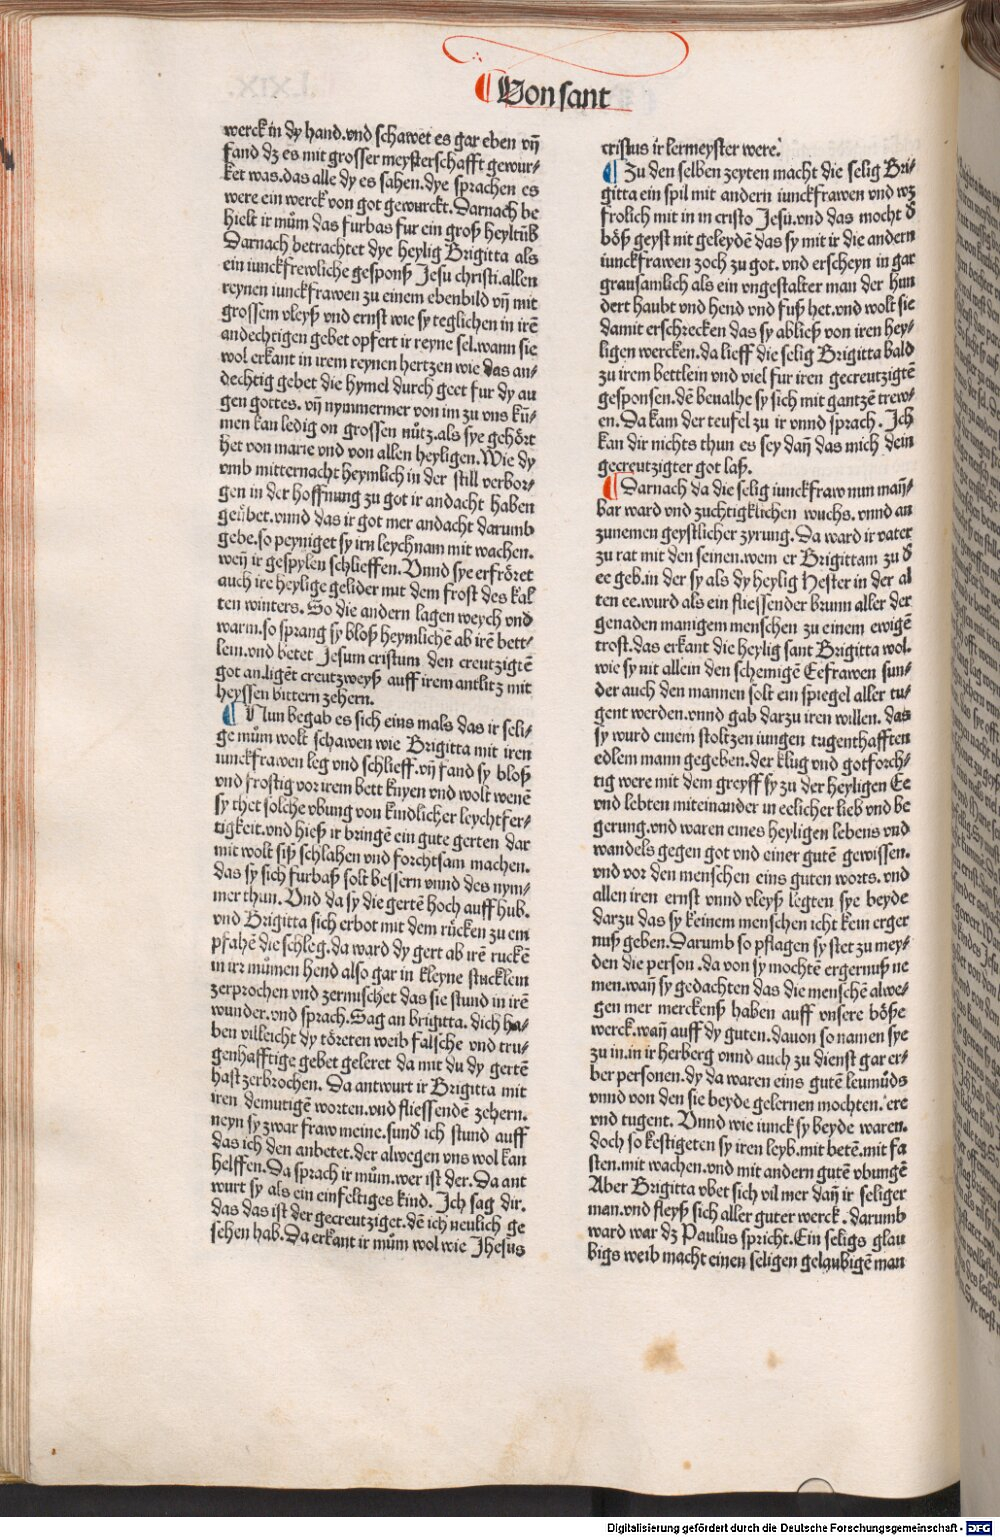 Von sant
werck in dy hand.vnd schawet es gar eben vn̄
fand dz es mit grosser meysterschafft gewur⸗
ket was.das alle dy es sahen.dye sprachen es
were ein werck von got gewurckt.Darnach be
hielt ir mům das furbas fur ein groß heyltūb
Darnach betrachtet dye heylig Brigitta als
ein iunckfrewliche gesponß Jesu christi.allen
reynen iunckfrawen zu einem ebenbild vn̄ mit
grossem vleyß vnd ernst wie sy teglichen in irē
andechtigen gebet opfert ir reyne sel.wann sie
wol erkant in irem reynen hertzen wie das an⸗
dechtig gebet die hymel durch geet fur dy au
gen gottes. vn̄ nymmermer von im zu vns kū⸗
men kan ledig on grossen nůtz.als sye gehört
het von marie vnd von allen heyligen.Wie dy
vmb mitternacht heymlich in der still verbor⸗
gen in der hoffnung zu got ir andacht haben
geůbet.vnnd das ir got mer andacht darumb
gebe.so peyniget sy irn leychnam mit wachen.
wen̄ ir gespylen schlieffen.Vnnd sye erfröret
auch ire heylige gelider mit dem frost des kal
ten winters. So die andern lagen weych vnd
warm.so sprang sy bloß heymlichē ab irē bett⸗
lein.vnd betet Jesum cristum den creutzigtē
got an.ligēt creutzweyß auff irem antlitz mit
heyssen bittern zehern.
¶ Nun begab es sich eins mals das ir seli⸗
ge mům wolt schawen wie Brigitta mit iren
iunckfrawen leg vnd schlieff.vn̄ fand sy bloß
vnd frostig vor irem bett knyen vnd wolt wenē
sy thet solche vbung von kindlicher leychtfer⸗
tigkeit.vnd hieß ir bringē ein gute gerten dar
mit wolt siß schlahen vnd forchtsam machen.
das sy sich furbaß solt bessern vnnd des nym⸗
mer thun. Vnd da sy die gertē hoch auff hub.
vnd Brigitta sich erbot mit dem růcken zu em
pfahē die schleg.da ward dy gert ab irē ruckē
in irz můmen hend also gar in kleyne stucklein
zerprochen vnd zermischet das sie stund in irē
wunder.vnd sprach.Sag an brigitta. dich ha⸗
ben villeicht dy töreten weib falsche vnd tru⸗
genhafftige gebet geleret da mit du dy gertē
hast zerbrochen. Da antwurt ir Brigitta mit
iren demutigē worten.vnd fliessendē zehern.
neyn sy zwar fraw meine.sund̄ ich stund auff
das ich den anbetet.der alwegen vns wol kan
helffen.Da sprach ir mům.wer ist der.Da ant
wurt sy als ein einfeltiges kind. Jch sag dir.
das das ist der gecreutziget.dē ich neulich ge
sehen hab.Da erkant ir mům wol wie Jhesus
cristus ir lermeyster were.
¶ Zu den selben zeyten macht die selig Bri⸗
gitta ein spil mit andern iunckfrawen vnd wz
frolich mit in in cristo Jesu.vnd das mocht d̄
böß geyst nit geleydē das sy mit ir die andern
iunckfrawen zoch zu got. vnd erscheyn in gar
grausamlich als ein vngestalter man der hun
dert haubt vnd hend vnd fuß het.vnd wolt sie
damit erschrecken das sy abließ von iren hey⸗
ligen wercken.da lieff die selig Brigitta bald
zu irem bettlein vnd viel fur iren gecreutzigtē
gesponsen.dē beualhe sy sich mit gantzē trew⸗
en.Da kam der teufel zu ir vnnd sprach. Jch
kan dir nichts thun es sey dan̄ das mich dein
gecreutzigter got laß.
¶ Darnach da die selig iunckfraw nun man̄⸗
bar ward vnd zuchtigklichen wuchs. vnnd an
zunemen geystlicher zyrung. Da ward ir vater
zu rat mit den seinen.wem er Brigittam zu d̄
ee geb.in der sy als dy heylig Hester in der al
ten ee.wurd als ein fliessender brunn aller der
genaden manigem menschen zu einem ewigē
trost.das erkant die heylig sant Brigitta wol.
wie sy nit allein den schemigē Eefrawen sun⸗
der auch den mannen solt ein spiegel aller tu⸗
gent werden.vnnd gab darzu iren willen. das
sy wurd einem stoltzen iungen tugenthafften
edlem mann gegeben.der klug vnd gotforch⸗
tig were mit dem greyff sy zu der heyligen Ee
vnd lebten miteinander in eelicher lieb vnd be
gerung.vnd waren eines heyligen lebens vnd
wandels gegen got vnd einer gutē gewissen.
vnd vor den menschen eins guten worts. vnd
allen iren ernst vnnd vleyß legten sye beyde
darzu das sy keinem menschen icht kein erger
nuß geben.Darumb so pflagen sy stet zu mey⸗
den die person .da von sy mochtē ergernuß ne
men.wan̄ sy gedachten das die menschē alwe⸗
gen mer merckenß haben auff vnsere böße
werck.wan̄ auff dy guten.dauon so namen sye
zu in.in ir herberg vnnd auch zu dienst gar er⸗
ber personen.dy da waren eins gutē leumůds
vnnd von den sie beyde gelernen mochten. ere
vnd tugent. Vnnd wie iunck sy beyde waren.
doch so kestigeten sy iren leyb.mit betē.mit fa
sten.mit wachen.vnd mit andern gutē vbungē
Aber Brigitta vbet sich vil mer dan̄ ir seliger
man.vnd fleyß sich aller guter werck . darumb
ward war dz Paulus spricht.Ein seligs glau
bigs weib macht einen seligen gelaubigē man
Digitalisierung gefördert durch die Deutsche Forschungsgemeinschaft - DFG